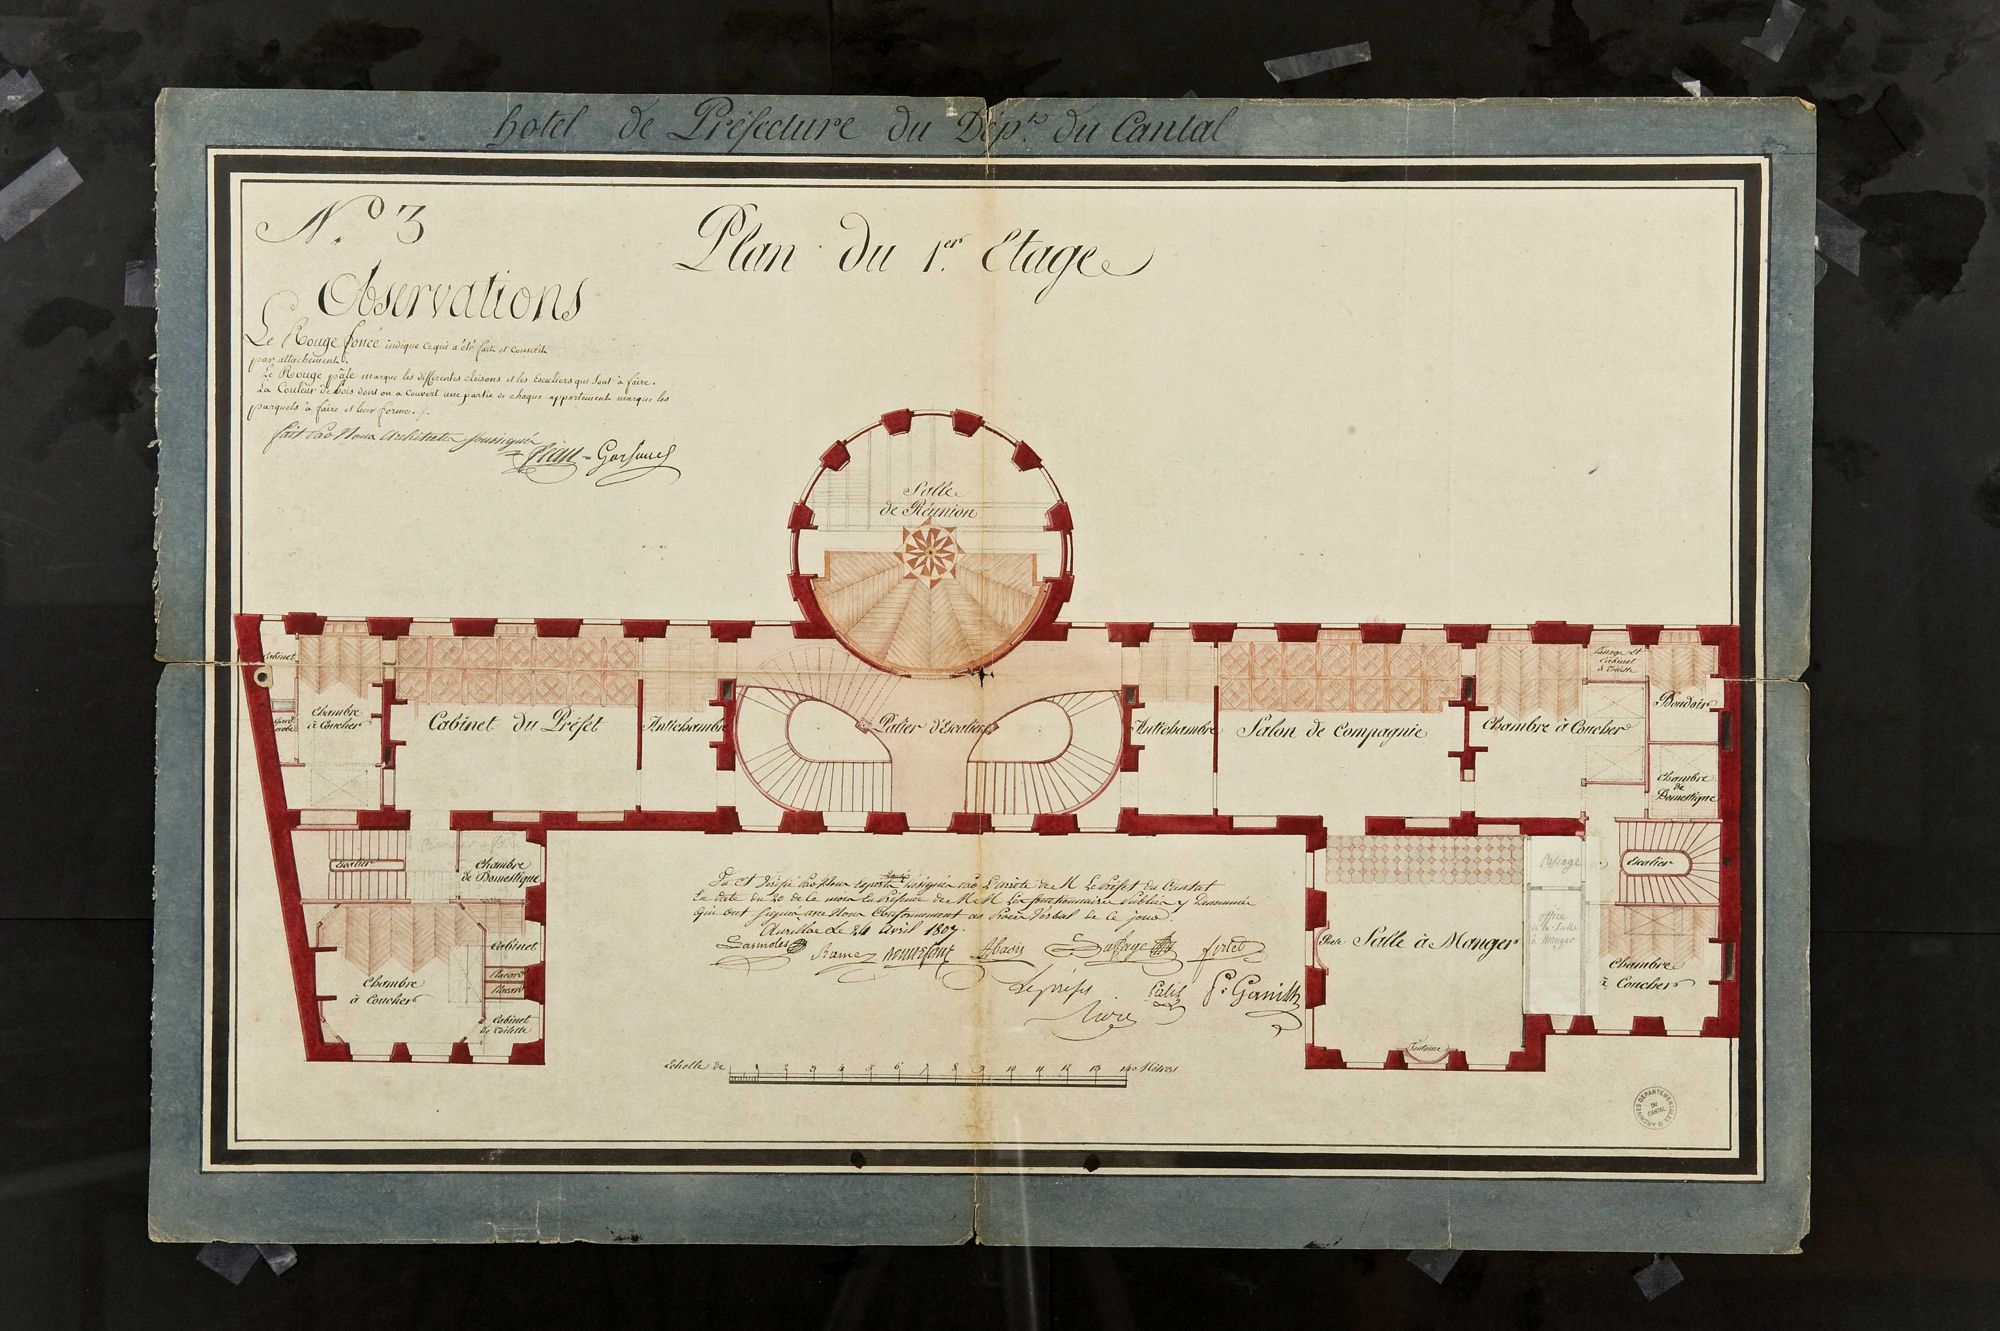 hotel de Préfecture du Dép.to du Cantal
N.o 3
Plan du 1.er Etage
Observations
Le Rouge foncé indique ce qui a été fait et construit
par attachement.
Le Rouge pâle marque les différentes cloisons et les Escaliers qui sont à faire.
La Couleur de bois dont on a couvert une partie de chaque appartement marque les
parquets à faire et leur forme.
fait par Nous Architectes soussignés
Salle
de Réunion
Cabinet
Garde
robe
Chambre
à Coucher
Cabinet du Préfet
Antichambre
Palier d'Escalier
Antichambre
Salon de Compagnie
Chambre à Coucher
Passage et
Cabinet
de toilette
Boudoir
Chambre
de
Domestique
Escalier
Chambre
de Domestique
Chambre
à Coucher
Cabinet
Placard
Placard
Cabinet
de toilette
Poele
Salle à Manger
Passage
office
de la Salle
à Manger
Escalier
Chambre
à Coucher
Fontaine
Vu et Vérifié par Nous Experts désignés par L'arrêté de M. Le Préfet du Cantal
En date du 20 de ce mois En Présence de M.M. les fonctionnaires Publics y Dénommés
qui ont signé avec Nous Conformément au Procès Verbal de ce jour.
Aurillac Le 24 Avril 1807.
Ramez
Abadie
Le préfet
Echelle de 1 2 3 4 5 6 7 8 9 10 11 12 13 14 Mètres
ARCHIVES DEPARTEMENTALES
DU
CANTAL